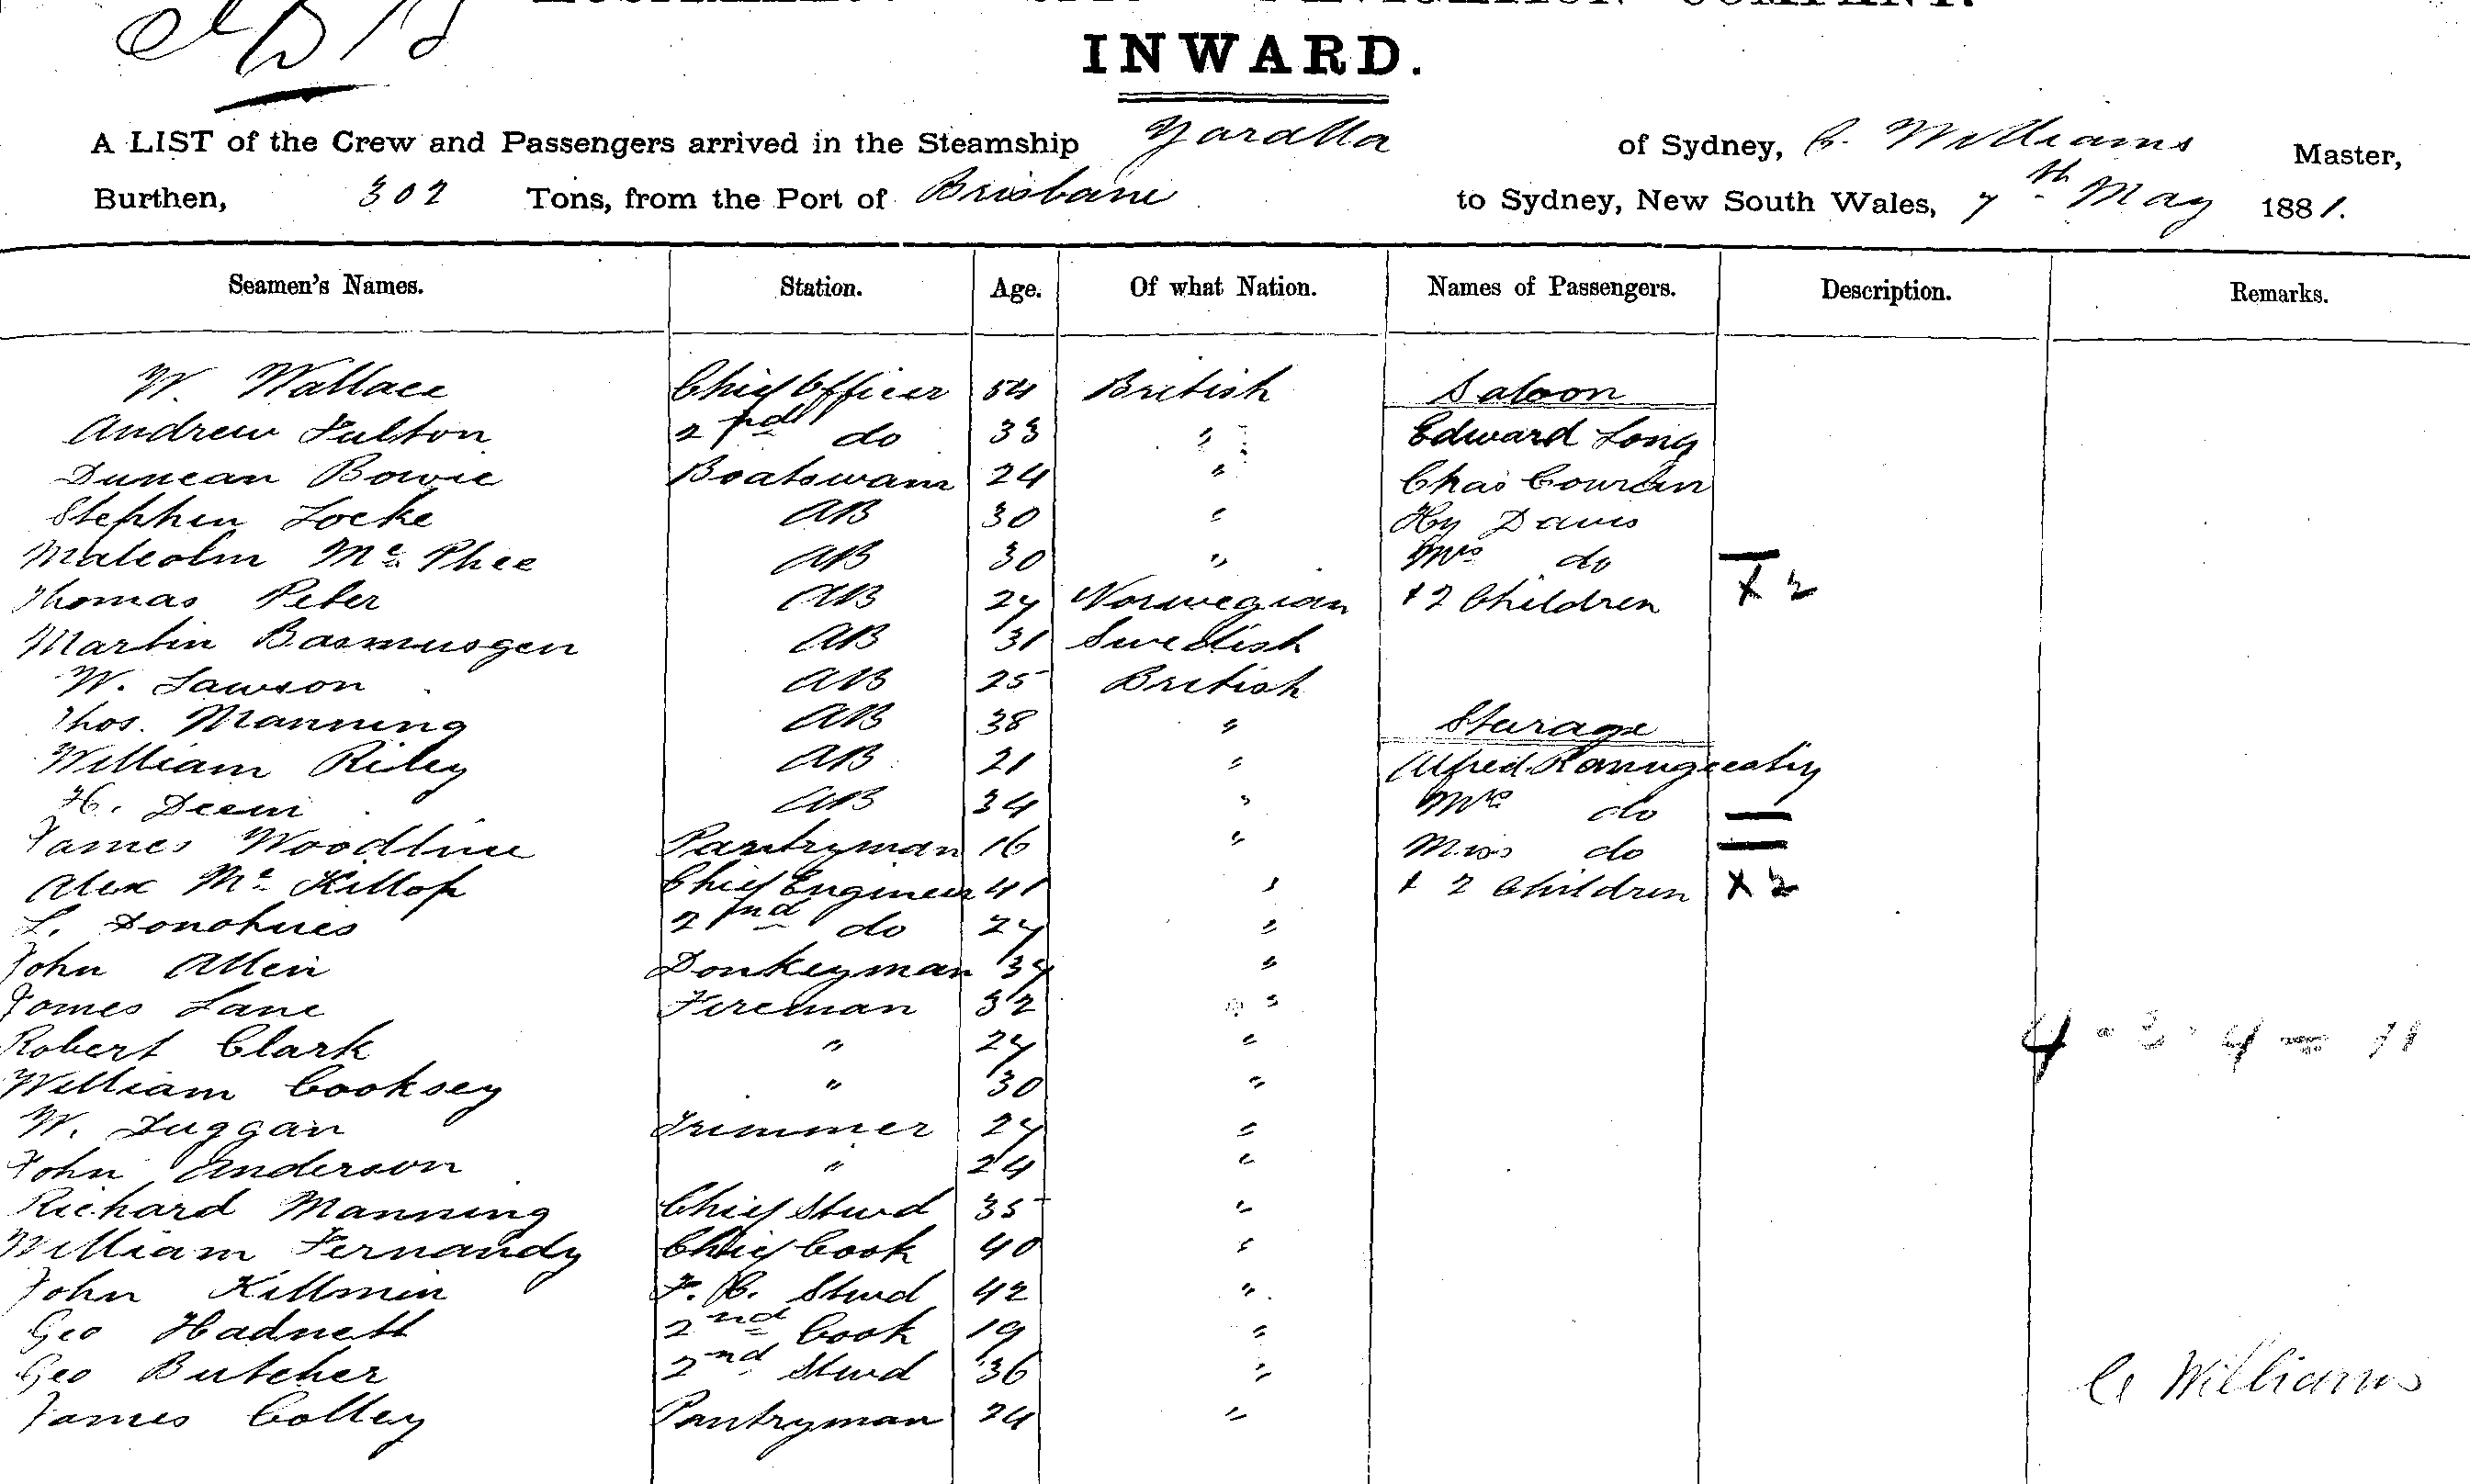 INWARD.
A LIST of the Crew and Passengers arrived in the Steamship Yaralla of Sydney, C. Williams Master,
Burthen, 302 Tons, from the Port of Brisbane to Sydney, New South Wales, 7th May 1881.
Seamen's Names. Station. Age. Of what Nation. Names of Passengers. Description. Remarks.
W. Wallace Chief Officer 54 British Saloon
Andrew Fulton 2nd do 33 " Edward Long
Duncan Bowie Boatswain 24 " Chas
Stephen Locke AB 30 " Hy Davis
Malcolm Mc Phee AB 30 " Mrs do —
Thomas Peter AB 27 Norwegian + 2 Children X 2
Martin Basmusgen AB 31 Swedish
W. Lawson AB 25 British
Thos. Manning AB 38 " Sturage
William Riley AB 21 " Alfred
H. Deem AB 34 " Mrs do —
James Woodline Pantryman 16 " Miss do —
Alex Mc Killop Chief Engineer 41 " + 2 Children X 2
L. Donohues 2nd do 27 "
John Allen Donkeyman 37 "
James Lane Fireman 32 "
Robert Clark " 27 " 4 - 3 - 4 = 11
William Cooksey " 30 "
W. Duggan Trimmer 27 "
John Anderson " 24 "
Richard Manning Chief Stwd 35 "
William Fernandy Chief Cook 40 "
John Killmin F. C. Stwd 42 "
Geo Hadnett 2nd Cook 19 "
Geo Butcher 2nd Stwd 36 " C Williams
James Colley Pantryman 24 "